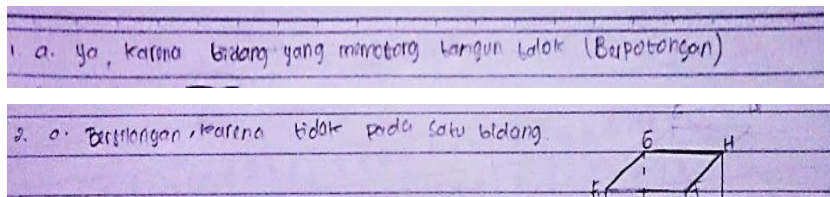 1. a. ya, karena bidang yang memotong bangun balok (Berpotongan)
2. a. Bersilangan, karena tidak pada satu bidang
G H